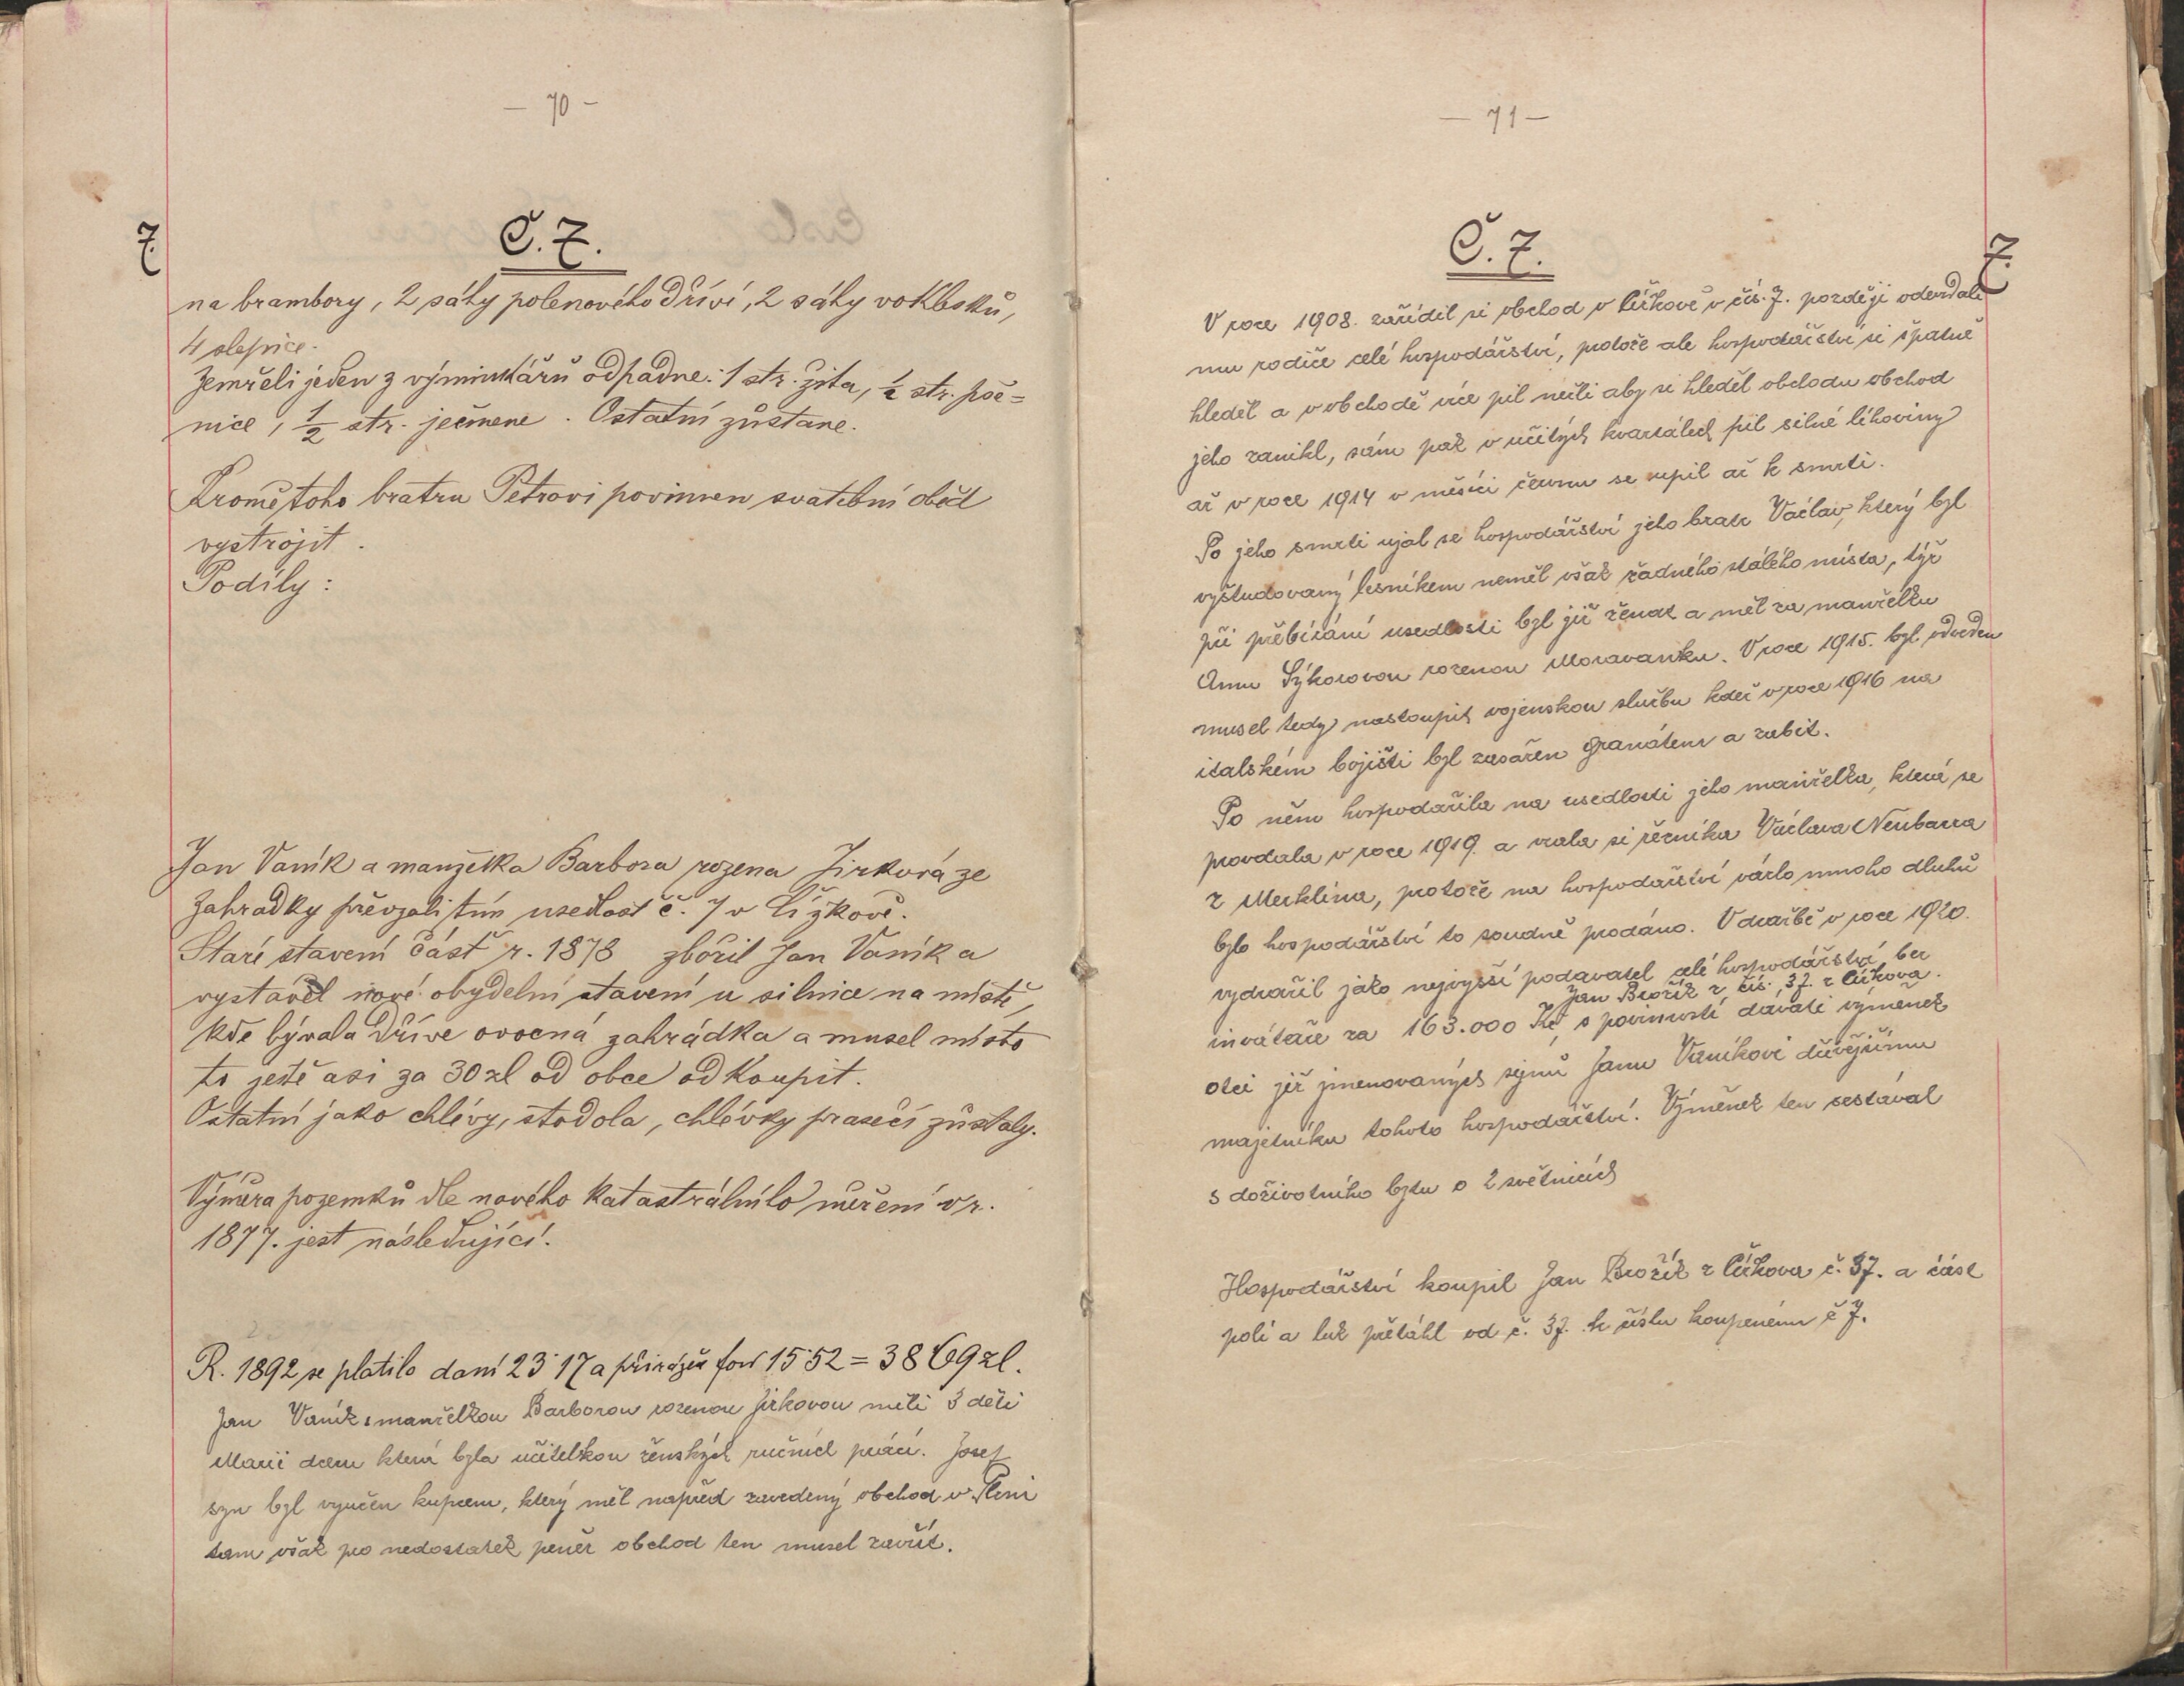 — 70 —
7.
Č. 7.
na brambory, 2 sáhy polenového dříví, 2 sáhy vokleskú,
4 slepice.
Zemřeli jeden z výminkářů odpadne: 1 str. žita, ½ str. pše=
nice, ½ str. ječmene. Ostatní zůstane.
Kromě toho bratru Petrovi povinnen svatební oběd
vystrojit.
Podíly:
Jan Vaník a manželka Barbora rozena Jirková ze
Zahradky převzali tím usedlost č. 7 v Lížkově.
Staré stavení část r. 1878 zbořil Jan Vaník a
vystavěl nové obydelní stavení u silnice na místě,
kde bývala dříve ovocná zahrádka a musel místo
to ještě asi za 30 zl od obce odkoupit.
Ostatní jako chlévy, stodola, chlévky prasečí zůstaly.
Výměra pozemků dle nového katastrálního měření v r.
1877. jest následující.
R. 1892 se platilo daní 23·17 a přirážek 15·52 = 38 69 zl.
Jan Vaník s manželkou Barborou rozenou Jirkovou měli 3 děti
Marii dceru která byla učitelkou ženských ručních prácí. Josef
syn byl vyučen kupcem, který měl napřed zavedený obchod v Plzni
tam však pro nedostatek peněz obchod ten musel zavřít.
— 71 —
Č. 7.
7.
V roce 1908. zařídil si obchod v Líčkově v čís. 7. později odevzdali
mu rodiče celé hospodářství, protože ale hospodářství si špatně
hleděl a v obchodě více pil nežli aby si hleděl obchodu obchod
jeho zanikl, sám pak v určitých kvartálech pil silné lihoviny
až v roce 1914 v měsíci červnu se upil až k smrti.
Po jeho smrti ujal se hospodářství jeho bratr Václav, který byl
vyštudovaný lesníkem neměl však žadného stálého místa, týž
při přebírání usedlosti byl již ženat a měl za manželku
Annu Sýkorovou rozenou Moravanku. V roce 1915. byl odveden
musel tedy nastoupit vojenskou službu kdež v roce 1916 na
italském bojišti byl zasažen granátem a zabit.
Po něm hospodařila na usedlosti jeho manželka, která se
provdala v roce 1919. a vzala si řezníka Václava Neubarra
z Merklína, protože na hospodářství vázlo mnoho dluhů
bylo hospodářství to soudně prodáno. V dražbě v roce 1920.
vydražil jako nejvyšší podavatel celé hospodářství, bez
Jan Brožík z čís. 37. z Líčkova.
invátaře za 163.000 Kč, s povinností dávati výměnek
otci již jmenovaných synů Janu Vaníkovi dřívějšímu
majetníku tohoto hospodářství. Výměnek ten sestával
s doživotního bytu o 2 světnicích
Hospodářství koupil Jan Brožík z Líčkova č. 37. a část
polí a luk přetáhl od č. 37. k číslu koupenému č 7.